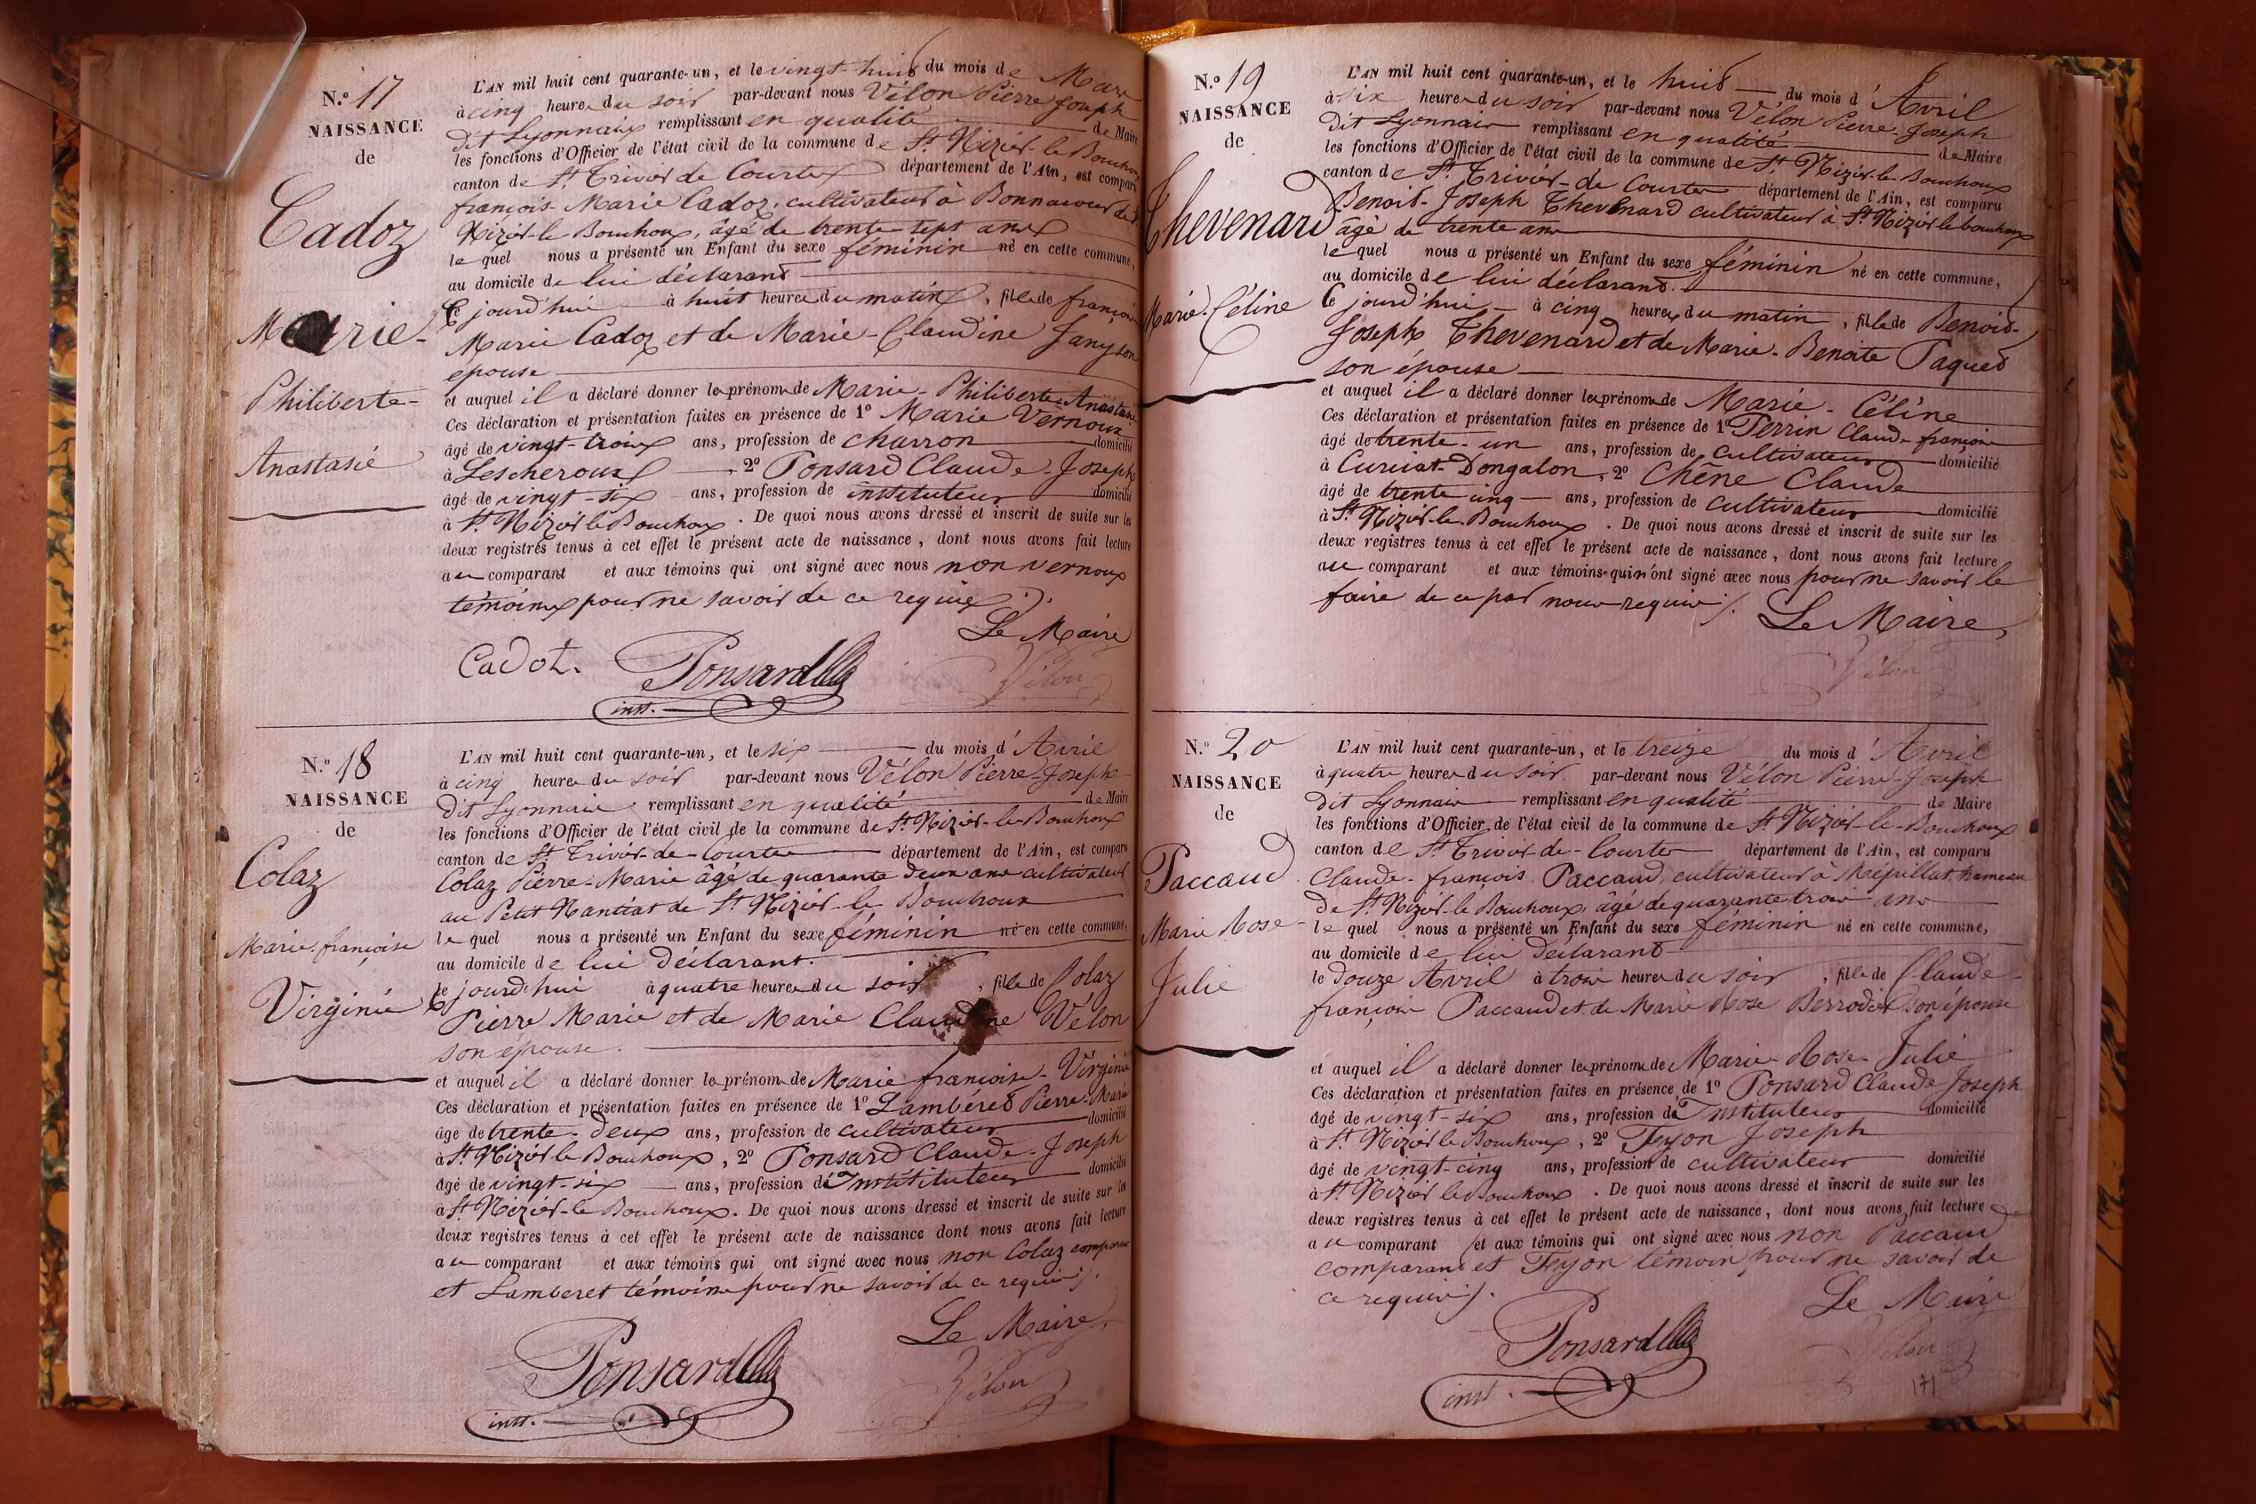 N.º 17
NAISSANCE
de
Cadoz
Marie-
Philiberte-
Anastasie
L'AN mil huit cent quarante-un, et le vingt-huit du mois de Mars
à cinq heures du soir par-devant nous Vélon Pierre Joseph
dit Lyonnais remplissant en qualité de Maire
les fonctions d'Officier de l'état civil de la commune de St. Nizier-le-Bouchoux
canton de St. Trivier de Courtes département de l'Ain, est comparu
françois Marie Cadoz, cultivateur à Bonnacour de St
Nizier-le Bouchoux, âgé de trente sept ans
lequel nous a présenté un Enfant du sexe féminin né en cette commune,
au domicile de lui déclarant
Ce jourd'hui à huit heures du matin, fille de françois
Marie Cadoz et de Marie-Claudine Janyson
épouse
et auquel il a déclaré donner les prénoms de Marie-Philiberte-Anastasie
Ces déclaration et présentation faites en présence de 1º Marie Vernoux
âgé de vingt-trois ans, profession de charron domicilié
à Lescheroux, 2º Ponsard Claude-Joseph
âgé de vingt-six ans, profession de instituteur domicilié
à St. Nizier le Bouchoux. De quoi nous avons dressé et inscrit de suite sur les
deux registres tenus à cet effet le présent acte de naissance, dont nous avons fait lecture
au comparant et aux témoins qui ont signé avec nous non vernoux
témoins pour ne savoir de ce requis ./.
Le Maire
Cadot. Ponsard Vélon
inst.
N.º 18
NAISSANCE
de
Colaz
Marie-françoise
Virginie
L'AN mil huit cent quarante-un, et le six du mois d'Avril
à cinq heures du soir par-devant nous Vélon Pierre-Joseph
dit Lyonnais remplissant en qualité de Maire
les fonctions d'Officier de l'état civil de la commune de St. Nizier-le-Bouchoux
canton de St. Trivier-de-Courtes département de l'Ain, est comparu
Colaz Pierre-Marie âgé de quarante deux ans cultivateur
au Petit Nantiat de St. Nizier-le-Bouchoux
lequel nous a présenté un Enfant du sexe féminin né en cette commune,
au domicile de lui déclarant.
Ce jourd'hui à quatre heures du soir, fille de Colaz
Pierre Marie et de Marie Claudine Vélon
son épouse.
et auquel il a déclaré donner les prénoms de Marie françoise-Virginie
Ces déclaration et présentation faites en présence de 1º Lambéret Pierre-Marie
âgé de trente-deux ans, profession de cultivateur domicilié
à St. Nizier le Bouchoux, 2º Ponsard Claude-Joseph
âgé de vingt-six ans, profession de Instituteur domicilié
à St. Nizier-le Bouchoux. De quoi nous avons dressé et inscrit de suite sur les
deux registres tenus à cet effet le présent acte de naissance dont nous avons fait lecture
au comparant et aux témoins qui ont signé avec nous non Colaz comparant
et Lamberet témoins pour ne savoir de ce requis ./.
Le Maire
Ponsard Vélon
inst.
N.º 19
NAISSANCE
de
Thevenard
Marie-Céline
L'AN mil huit cent quarante-un, et le huit du mois d'Avril
à six heures du soir par-devant nous Vélon Pierre-Joseph
dit Lyonnais remplissant en qualité de Maire
les fonctions d'Officier de l'état civil de la commune de St. Nizier-le-Bouchoux
canton de St. Trivier-de Courtes département de l'Ain, est comparu
Benoit-Joseph Thevenard cultivateur à St. Nizier le bouchoux
âgé de trente ans
lequel nous a présenté un Enfant du sexe féminin né en cette commune,
au domicile de lui déclarant.
Ce jourd'hui à cinq heures du matin, fille de Benoit-
Joseph Thevenard et de Marie-Benoite Paques
son épouse
et auquel il a déclaré donner les prénoms de Marie-Céline
Ces déclaration et présentation faites en présence de 1º Perrin Claude-françois
âgé de trente-un ans, profession de cultivateur domicilié
à Curciat-Dongalon, 2º Chêne Claude
âgé de trente cinq ans, profession de cultivateur domicilié
à St. Nizier-le-Bouchoux. De quoi nous avons dressé et inscrit de suite sur les
deux registres tenus à cet effet le présent acte de naissance, dont nous avons fait lecture
au comparant et aux témoins qui n'ont signé avec nous pour ne savoir le
faire de ce par nous requis ./. Le Maire
Vélon
N.º 20
NAISSANCE
de
Paccaud
Marie Rose-
Julie
L'AN mil huit cent quarante-un, et le treize du mois d'Avril
à quatre heures du soir par-devant nous Vélon Pierre-Joseph
dit Lyonnais remplissant en qualité de Maire
les fonctions d'Officier de l'état civil de la commune de St. Nizier-le-Bouchoux
canton de St. Trivier-de-Courtes département de l'Ain, est comparu
Claude-françois Paccaud, cultivateur à Mépillat, hameau
de St. Nizier-le Bouchoux, âgé de quarante trois ans
lequel nous a présenté un Enfant du sexe féminin né en cette commune,
au domicile de lui déclarant
le douze Avril à trois heures du soir, fille de Claude-
françois Paccaud et de Marie Rose Berrodier son épouse
et auquel il a déclaré donner les prénoms de Marie-Rose-Julie
Ces déclaration et présentation faites en présence de 1º Ponsard Claude Joseph
âgé de vingt-six ans, profession de Instituteur domicilié
à St. Nizier le Bouchoux, 2º Fyon Joseph
âgé de vingt-cinq ans, profession de cultivateur domicilié
à St. Nizier le Bouchoux. De quoi nous avons dressé et inscrit de suite sur les
deux registres tenus à cet effet le présent acte de naissance, dont nous avons fait lecture
au comparant et aux témoins qui ont signé avec nous non Paccaud
comparant et Fyon témoin pour ne savoir de
ce requis ./.
Le Maire
Ponsard Vélon
inst.
171